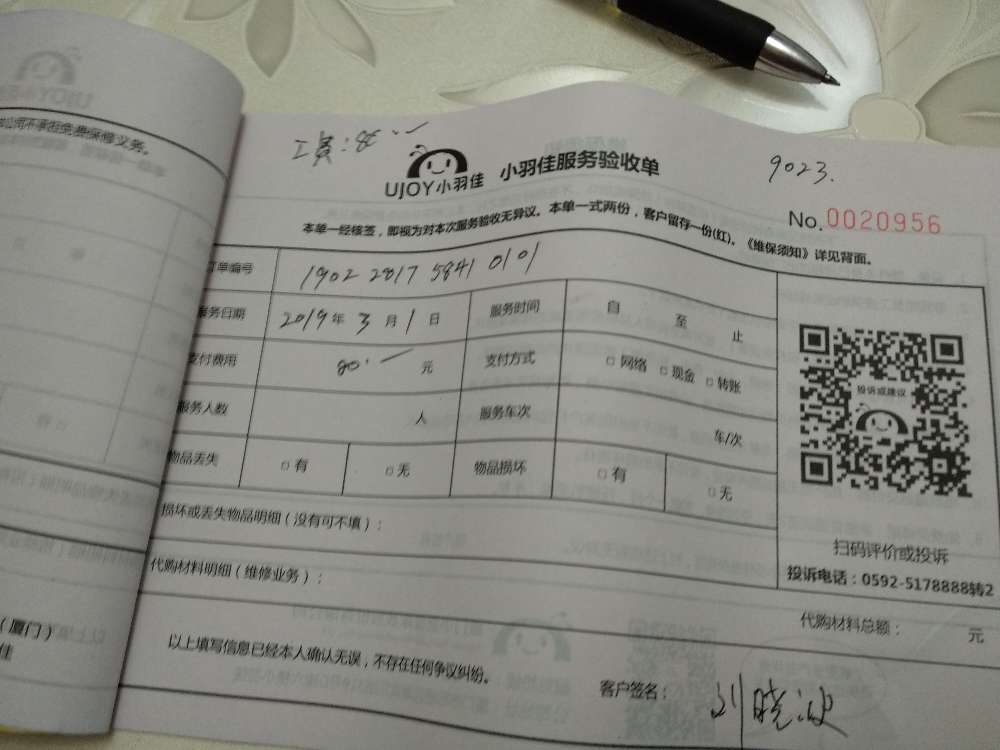 公司不承担免费保修义务。
工费:80.一
9023.
UJOY小羽佳 小羽佳服务验收单
No.0020956
本单一经核签,即视为对本次服务验收无异议。本单一式两份,客户留存一份(红)。《维保须知》详见背面。
订单编号 1902 2817 5841 0101
服务日期 2019年3月1日 服务时间 自 至 止
支付费用 80.一 元 支付方式 □网络 □现金 □转账
服务人数 人 服务车次 车/次
物品丢失 □有 □无 物品损坏 □有 □无
投诉或建议
损坏或丢失物品明细(没有可不填):
扫码评价或投诉
投诉电话:0592-5178888转2
代购材料明细(维修业务):
代购材料总额: 元
(厦门)
佳
以上填写信息已经本人确认无误,不存在任何争议纠纷。
客户签名: 刘晓波